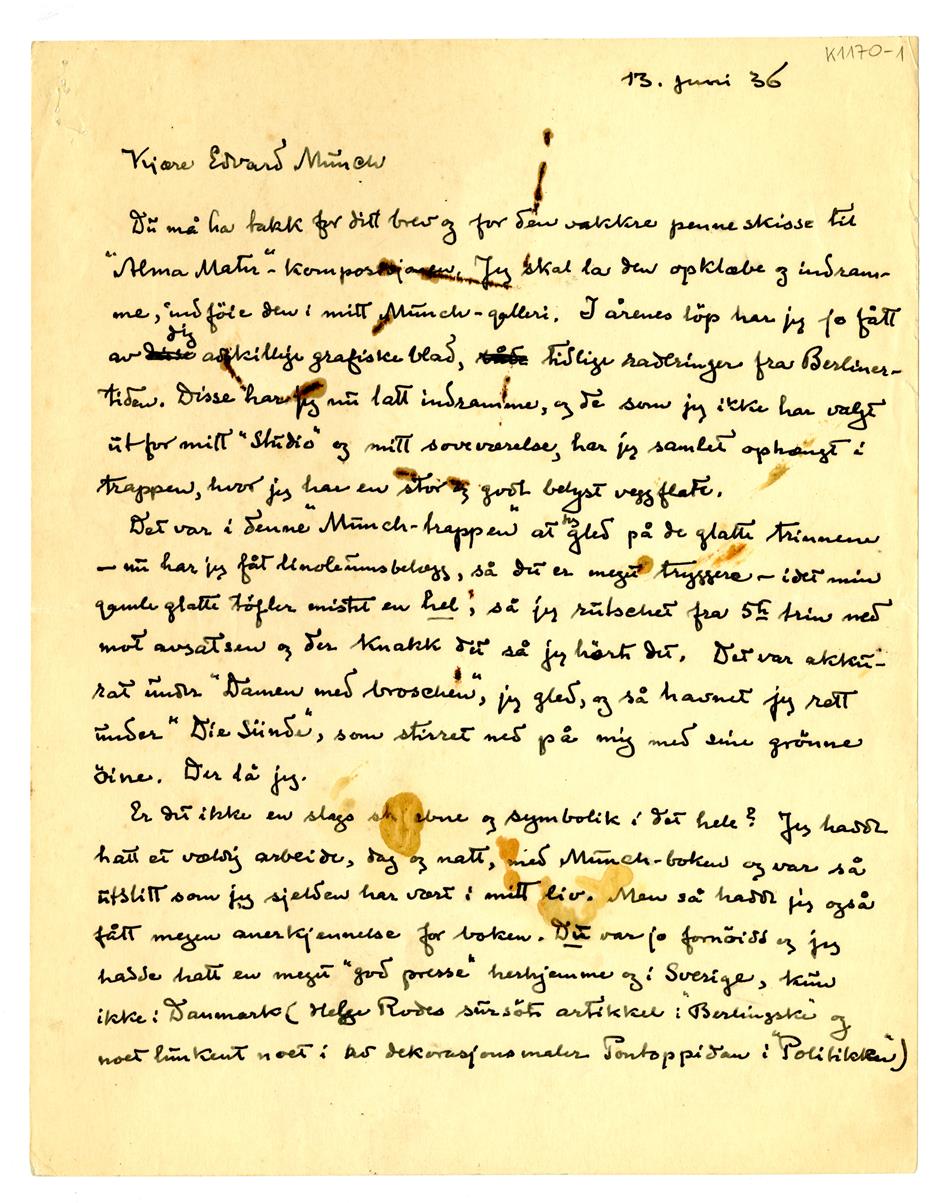 K1170-1
13. juni 36
Kjære Edvard Munch
Du må ha takk for ditt brev og for den vakkre penneskisse til
"Alma Mater"-komposisjonen. Jeg skal la den opklæbe og indram-
me, indföie den i mitt Munch-galleri. I årenes löp har jeg jo fått
av dig adskillige grafiske blad, tidlige raderinger fra Berliner-
tiden. Disse har jeg nu latt indramme, og de som jeg ikke har valgt
ut for mitt "Studio" og mitt soveværelse, har jeg samlet ophængt i
trappen, hvor jeg har en stor og godt belyst veggflate.
Det var i denne "Munch-trappen" at jeg gled på de glatte trinnene
— nu har jeg fåt linoleumsbelægg, så det er meget tryggere — idet min
gamle glatte töfler mistet en hel; så jeg rutschet fra 5te trin ned
mot avsatsen og der knakk det så jeg hörte det. Det var akku-
rat under "Damen med broschen", jeg gled, og så havnet jeg rett
under "Die Sünde", som stirret ned på mig med sine grönne
öine. Der lå jeg.
Er det ikke en slags skjebne og symbolik i det hele? Jeg hadde
hatt et vældig arbeide, dag og natt, med Munch-boken og var så
utslitt som jeg sjelden har vært i mitt liv. Men så hadde jeg også
fått megen anerkjennelse for boken. Du var jo fornöid og jeg
hadde hatt en meget "god presse" herhjemme og i Sverige, kun
ikke i Danmark (Helge Rodes sursöte artikkel i "Berlingske" og
noet lunkent noet i av dekorasjonsmaler Pontoppidan i "Politikken")